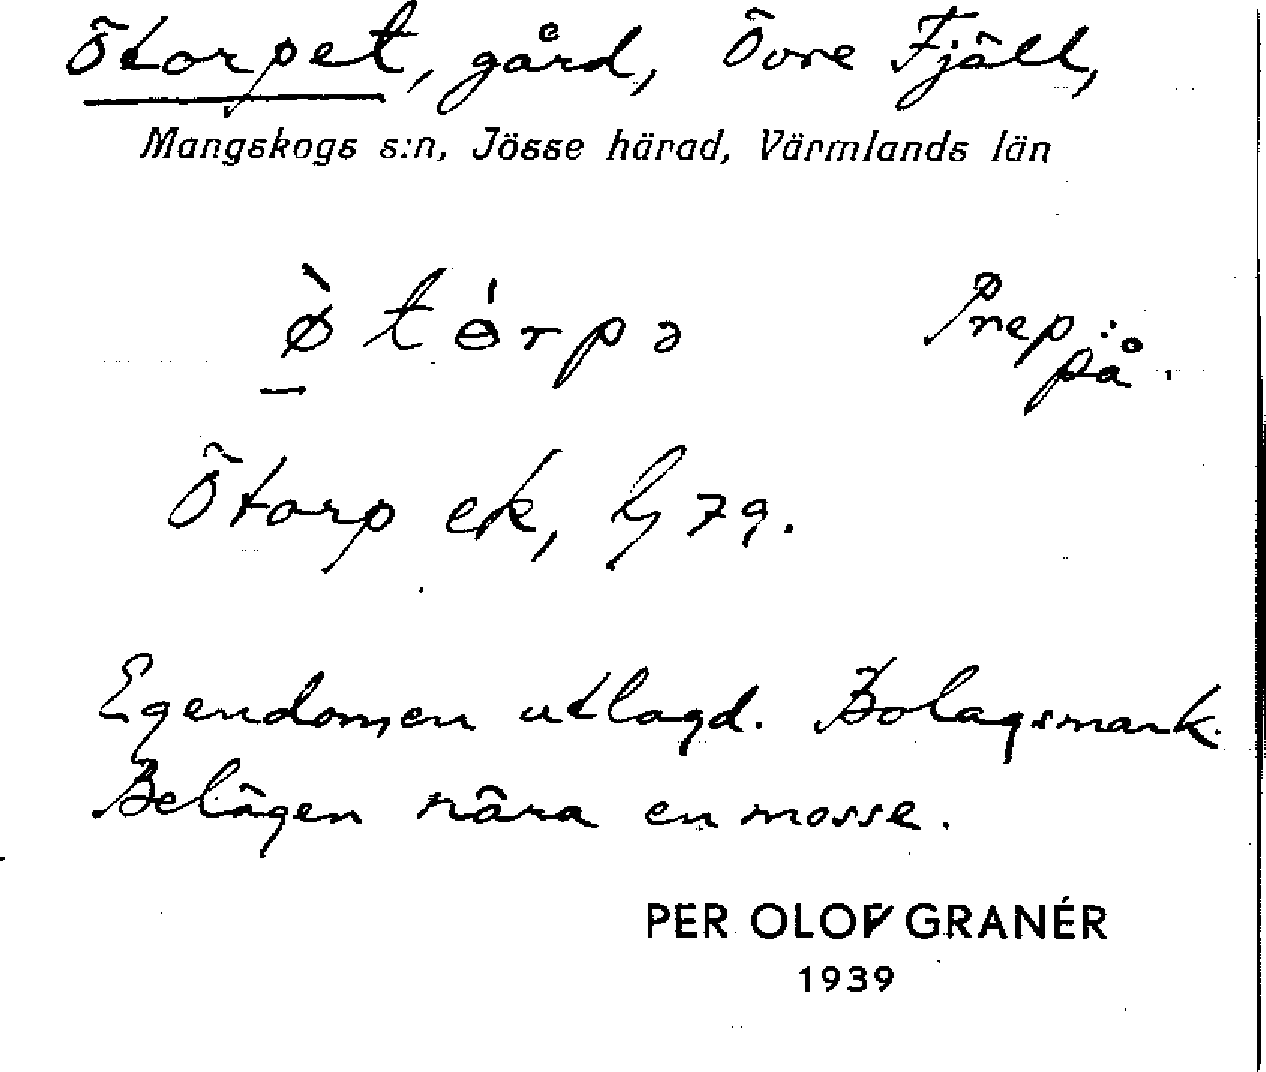 Ötorpet, gård, Övre Fjäll,
Mangskogs s:n, Jösse härad, Värmlands län
ø̀ t ɵ́ r p ə Prep.:
på.
Ötorp ek, G 79.
Egendomen utlagd. Bolagsmark.
Belägen nära en mosse.
PER OLOF GRANÉR
1939